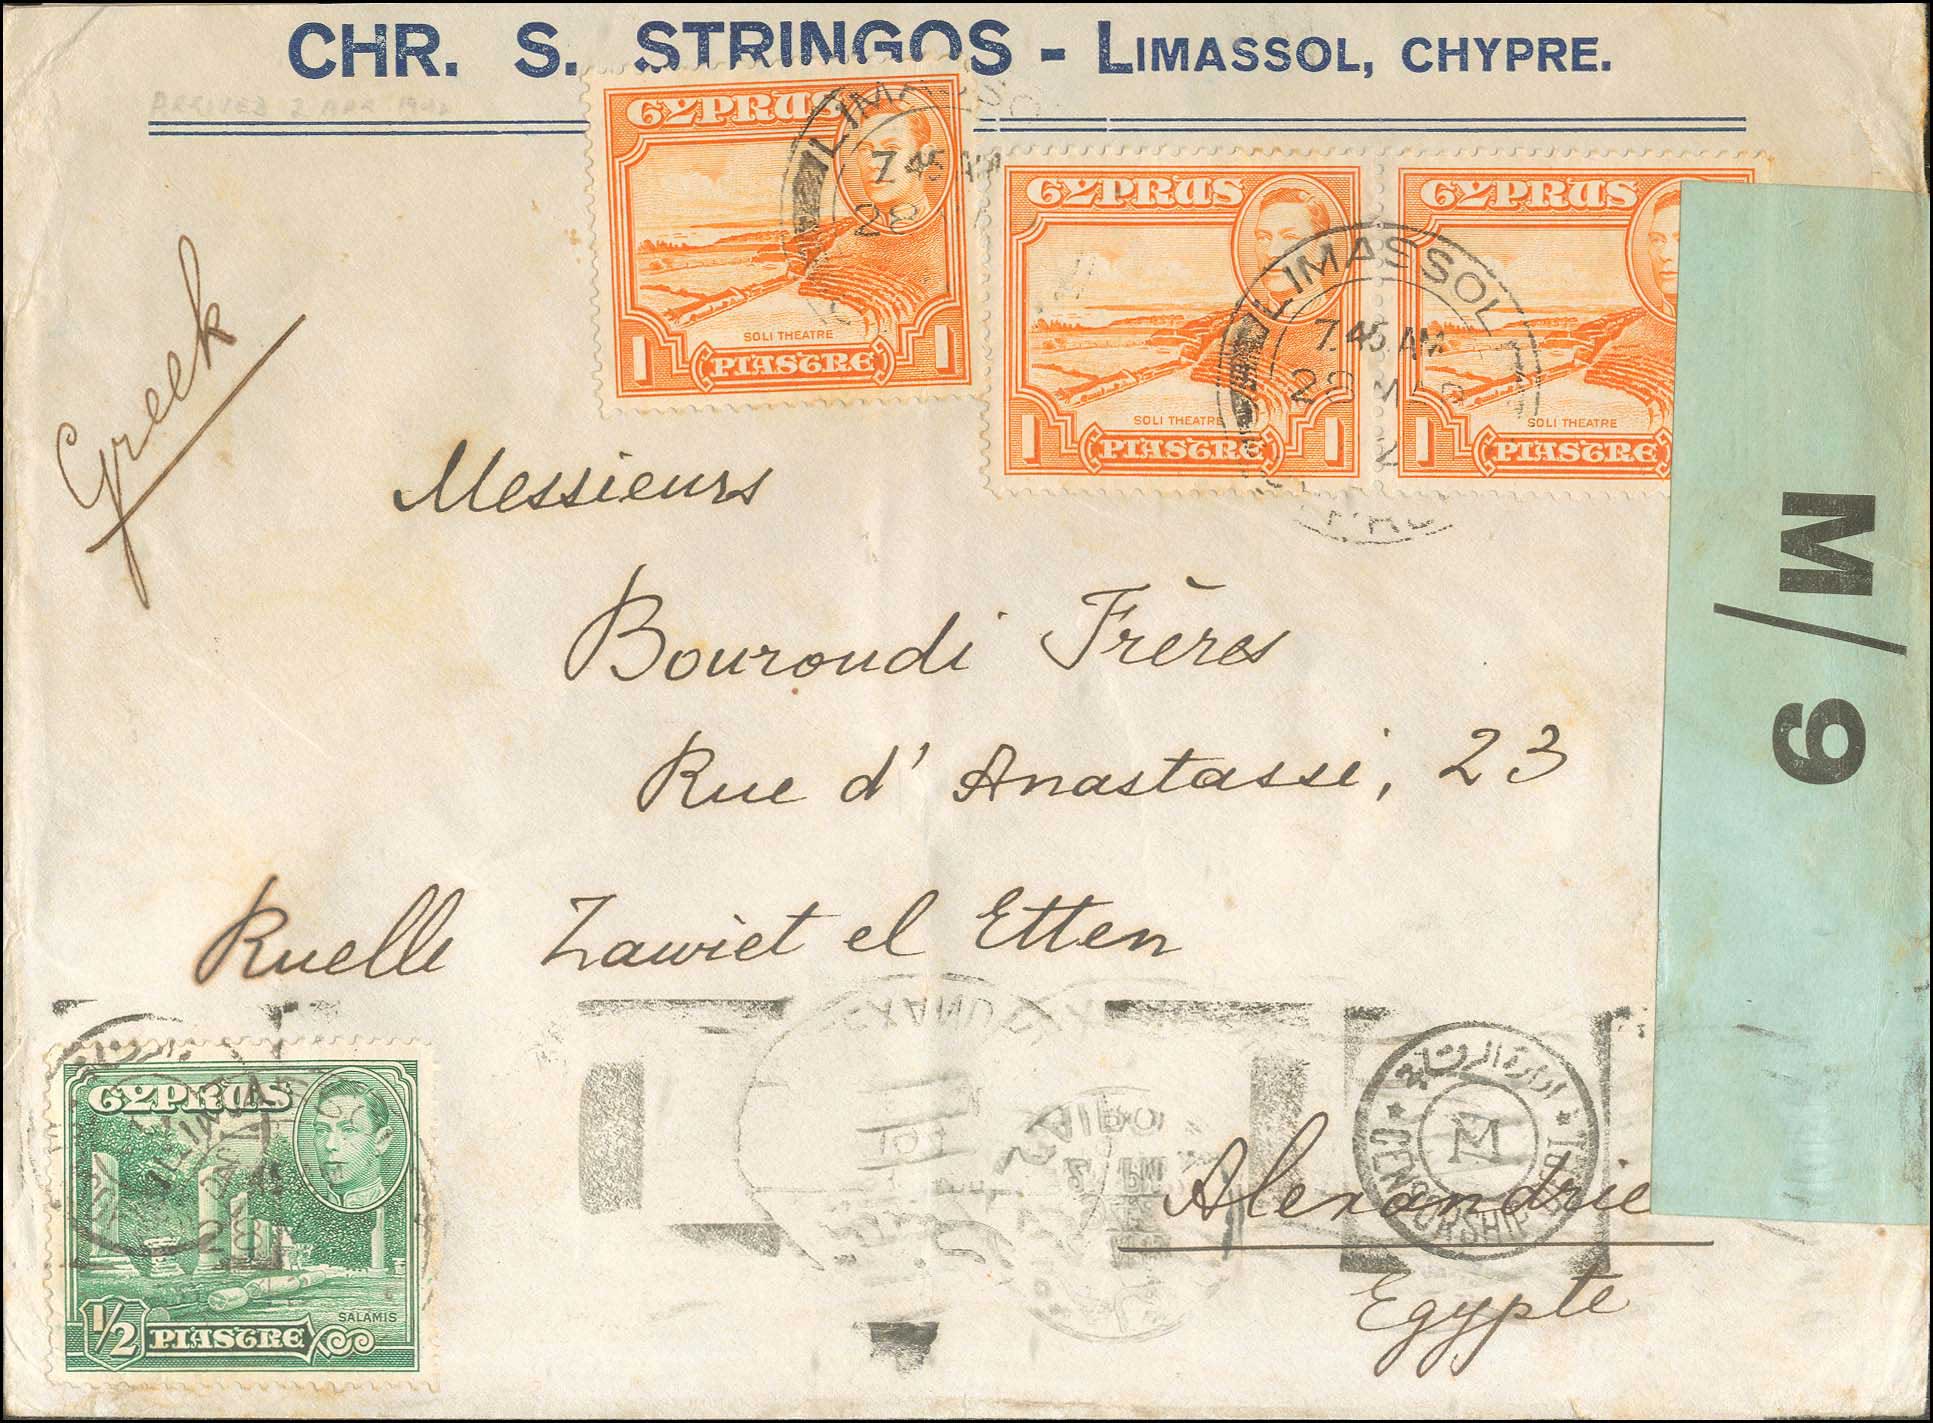 CHR. S. STRINGOS - LIMASSOL, CHYPRE.
ARRIVED 2 APR 1942
CYPRUS
SOLI THEATRE
1 PIASTRE 1
LIMASSOL
7.45 AM
28
CYPRUS
SOLI THEATRE
1 PIASTRE 1
CYPRUS
SOLI THEATRE
1 PIASTRE
LIMASSOL
7.45 AM
28 MAR
2
Greek
M/9
Messieurs
Bouroudi Frères
Rue d'Anastassi, 23
Ruelle Zawiet el Etten
Alexandrie
Egypte
CYPRUS
SALAMIS
1/2 PIASTRE
CAIRO
إدارة الرقابة
M
CENSORSHIP